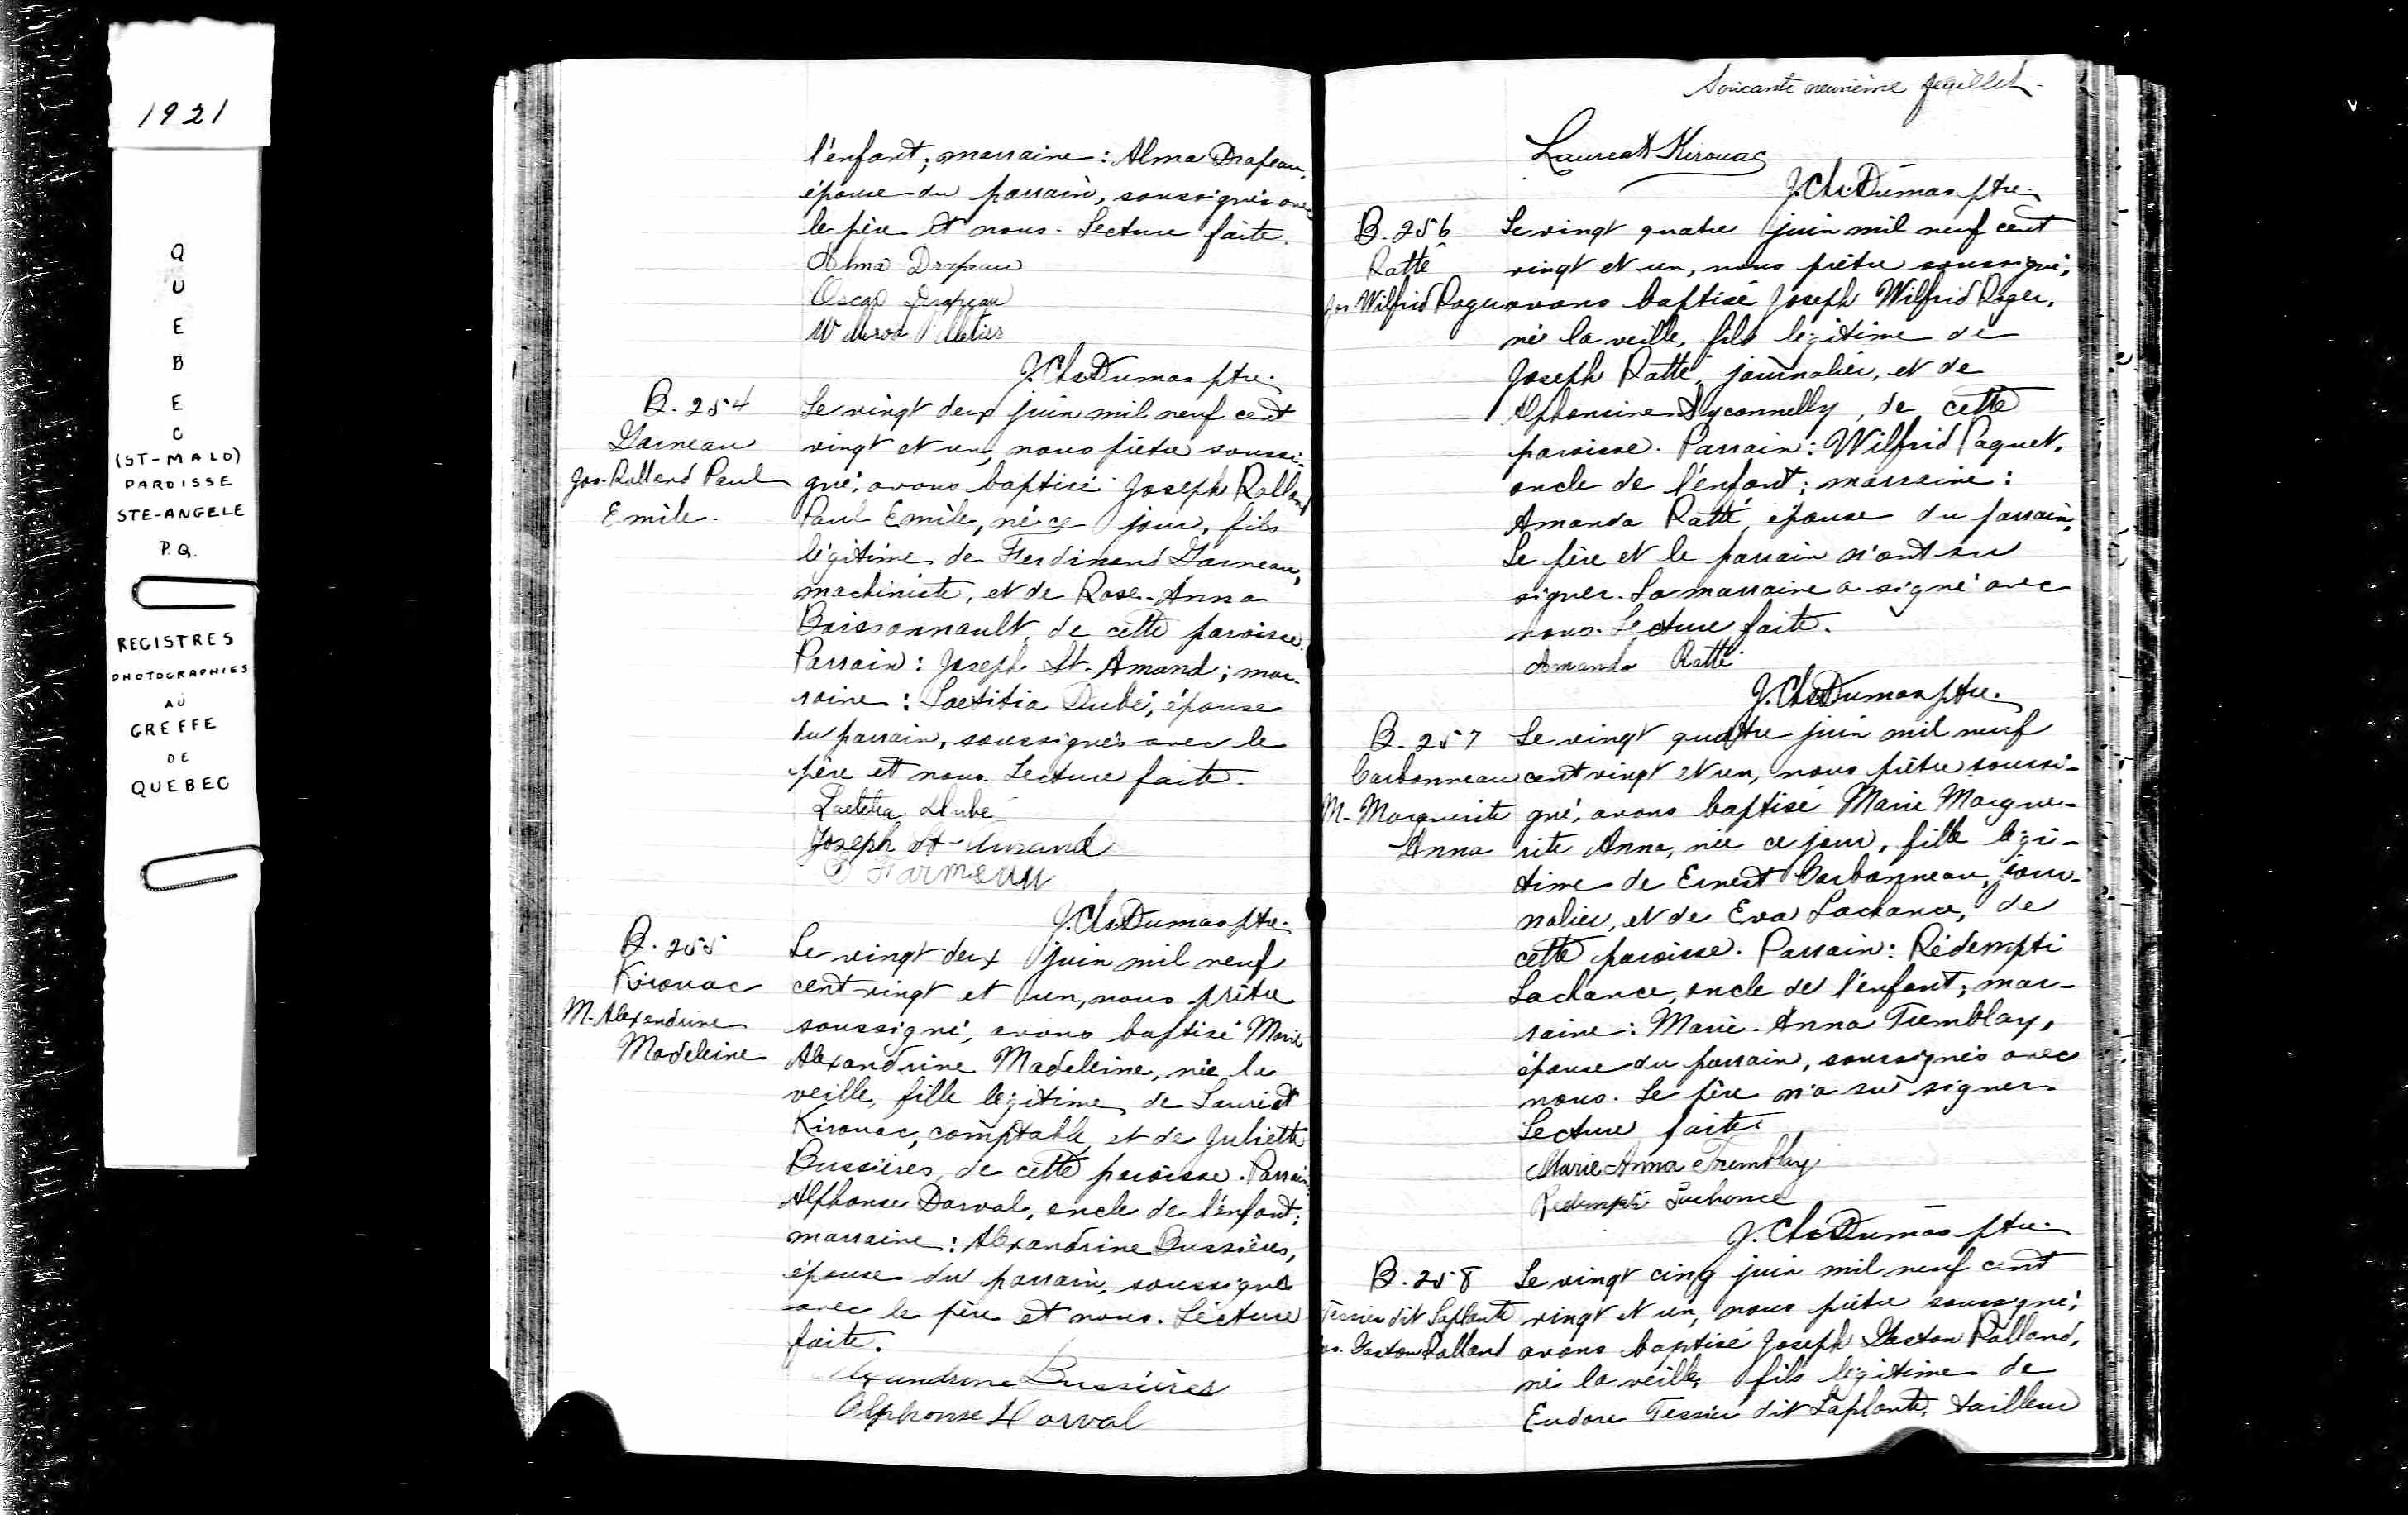 1921
QUEBEC
(ST-MALO)
PAROISSE
STE-ANGELE
P.Q.
REGISTRES
PHOTOGRAPHIES
AU
GREFFE
DE
QUEBEC
l'enfant; marraine: Alma Drapeau,
épouse du parrain, soussignés avec
le père et nous. Lecture faite.
Alma Drapeau
Oscar Drapeau
Pelletier
J. Chs Dumas ptre.
B. 254
Garneau
Jos. Rolland Paul
Emile.
Le vingt deux juin mil neuf cent
vingt et un, nous prêtre soussi-
gné, avons baptisé Joseph Rolland
Paul Emile, né ce jour, fils
légitime de Ferdinand Garneau,
machiniste, et de Rose-Anna
Boissonnault, de cette paroisse.
Parrain: Joseph St. Amand; mar-
raine: Laetitia Dubé, épouse
du parrain, soussignés avec le
père et nous. Lecture faite.
Laetitia Dubé
Joseph St-Amand
F Garneau
J. Chs Dumas ptre.
B. 255
Kirouac
M. Alexandrine
Madeleine
Le vingt deux juin mil neuf
cent vingt et un, nous prêtre
soussigné, avons baptisé Marie
Alexandrine Madeleine, née la
veille, fille légitime de Lauréat
Kirouac, comptable, et de Juliette
Bussières, de cette paroisse. Parrain:
Alphonse Dorval, oncle de l'enfant;
marraine: Alexandrine Bussières,
épouse du parrain, soussignés
avec le père et nous. Lecture
faite.
Alexandrine Bussières
Alphonse Dorval
Soixante neuvième feuillet.
Laureat Kirouac
J. Chs Dumas ptre.
B. 256
Ratté
Jos Wilfrid Roger
Le vingt quatre juin mil neuf cent
vingt et un, nous prêtre soussigné,
avons baptisé Joseph Wilfrid Roger,
né la veille, fils légitime de
Joseph Ratté, journalier, et de
Alphonsine Syconnelly, de cette
paroisse. Parrain: Wilfrid Paquet,
oncle de l'enfant; marraine:
Amanda Ratté, épouse du parrain.
Le père et le parrain n'ont su
signer. La marraine a signé avec
nous. Lecture faite.
Amanda Ratté
J. Chs Dumas ptre.
B. 257
Carbonneau
M. Marguerite
Anna
Le vingt quatre juin mil neuf
cent vingt et un, nous prêtre soussi-
gné, avons baptisé Marie Margue-
rite Anna, née ce jour, fille légi-
time de Ernest Carbonneau, jour-
nalier, et de Eva Lachance, de
cette paroisse. Parrain: Rédempti
Lachance, oncle de l'enfant; mar-
raine: Marie-Anna Tremblay,
épouse du parrain, soussignés avec
nous. Le père n'a su signer.
Lecture faite.
Marie Anna Tremblay
Redempti Lachance
J. Chs Dumas ptre.
B. 258
Tessier dit Laplante
Jos. Gaston Rolland
Le vingt cinq juin mil neuf cent
vingt et un, nous prêtre soussigné,
avons baptisé Joseph Gaston Rolland,
né la veille, fils légitime de
Eudore Tessier dit Laplante, tailleur